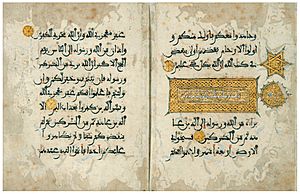 معكم فاولئك منكم و
اولوا الارحام بعضهم
اولى ببعض في كتب
الله ان الله بكل شي عليم
براة من الله ورسوله الى الذين
عهدتم من المشركين فسيحوا في
الارض اربعة اشهر واعلموا انكم
غير معجزي الله وان الله مخزي
الكفرين واذن من الله
ورسوله الى الناس يوم الحج
الاكبر ان الله بري من المشركين
ورسوله فان تبتم فهو خير لكم وان
توليتم فاعلموا انكم غير معجزي
الله وبشر الذين كفروا بعذاب اليم الا
الذين عهدتم من المشركين ثم لم
ينقصوكم شيا ولم يظهروا
عليكم احدا فاتموا اليهم